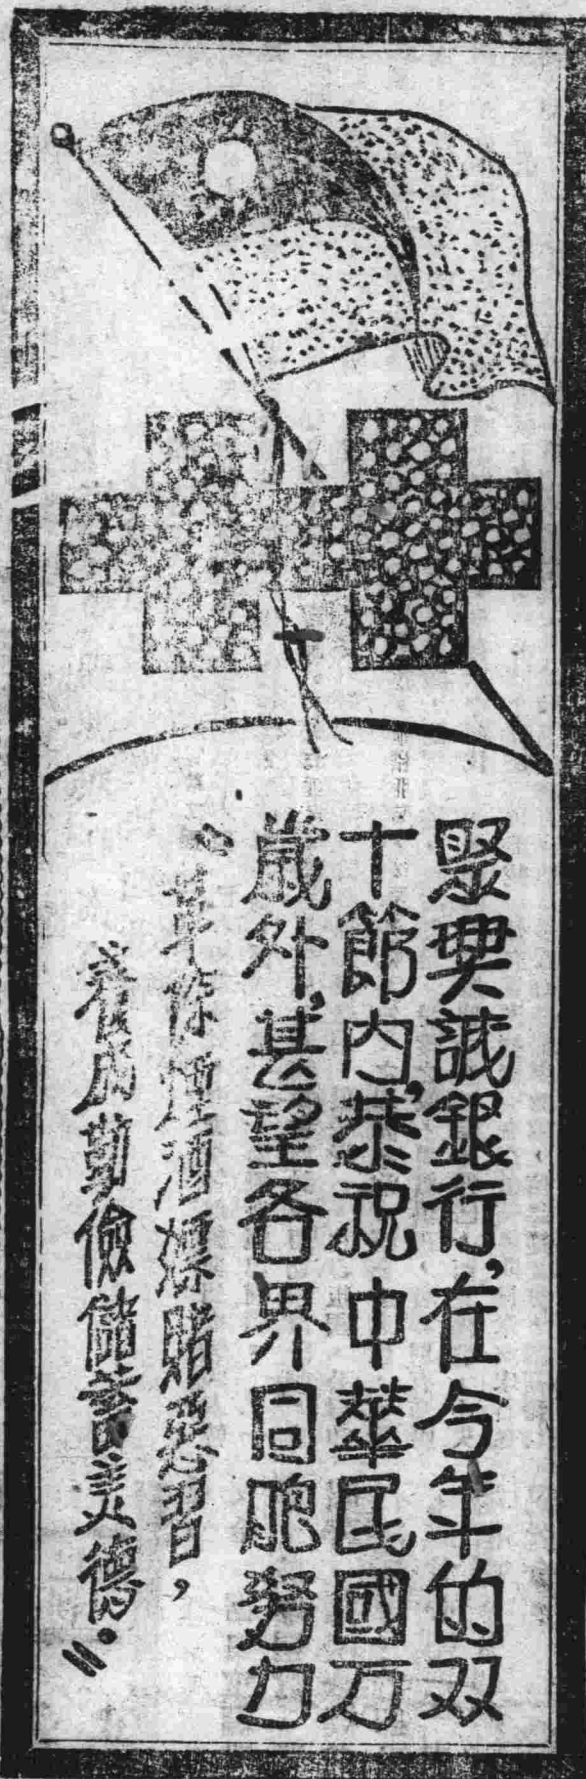 聚興誠銀行,在今年的双
十節内,恭祝中華民國万
歲外,甚望各界同胞努力
“革除煙酒嫖賭惡習,
養成勤儉儲蓄美德。”